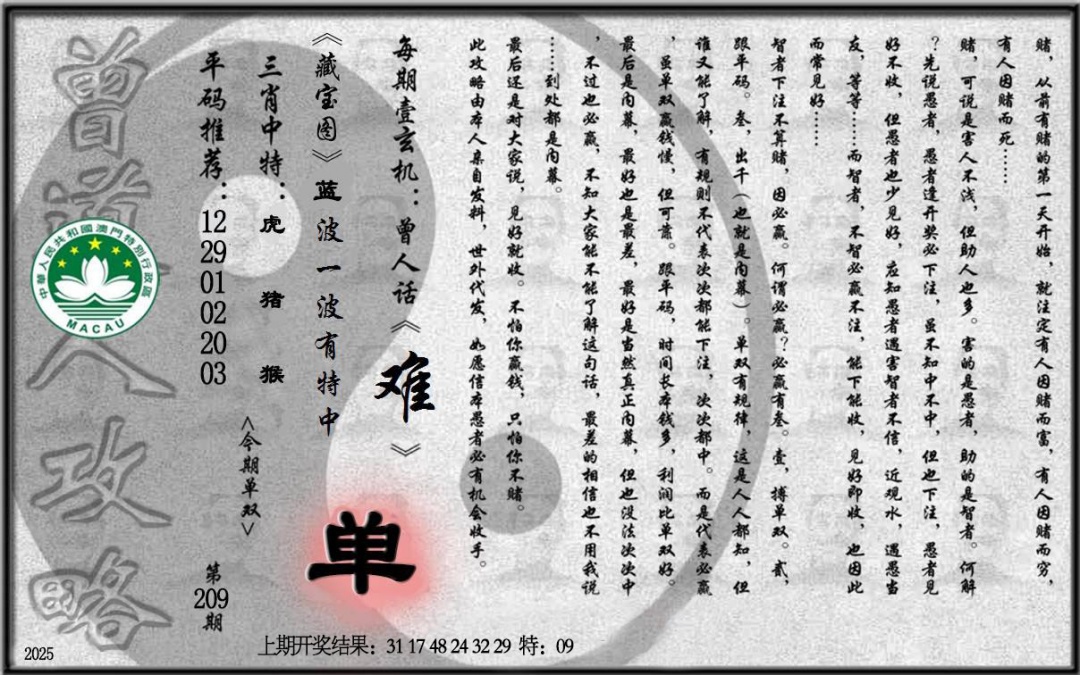 赌，从前有赌的第一天开始，就注定有人因赌而富，有人因赌而穷，
有人因赌而死……
赌，可说是害人不浅，但助人也多。害的是愚者，助的是智者。何解
？先说愚者，愚者逢开奖必下注，虽不知中不中，但也下注，愚者见
好不收，但愚者也少见好，应知愚者遇害智者不信，近观水，遇愚当
友，等等……而智者，不智必赢不注，能下能收，见好即收，也因此
而常见好……
智者下注不算赌，因必赢。何谓必赢？必赢有叁。壹，搏单双。贰，
跟单码。叁，出千（也就是内幕）。单双有规律，这是人人都知，但
谁又能了解，有规则不代表次次都能下注，次次都中。而是代表必赢
，虽单双赢钱慢，但可靠。跟单码，时间长本钱多，利润比单双好。
最后是内幕，最好也是最差，最好是当然真正内幕，但也没法次次中
，不过也必赢，不知大家能不能了解这句话，最差的相信也不用我说
……到处都是内幕。
最后还是对大家说，见好就收。不怕你赢钱，只怕你不赌。
此攻略由本人亲自发料，世外代发，如愿信本愚者必有机会收手。
每期壹玄机：曾人话《难》
《藏宝图》蓝波一波有特中
三肖中特：虎 猪 猴
平码推荐：12 29 01 02 20 03
<今期单双>
单
第209期
曾道人攻略
中華人民共和國澳門特別行政區
MACAU
2025
上期开奖结果：31 17 48 24 32 29 特：09